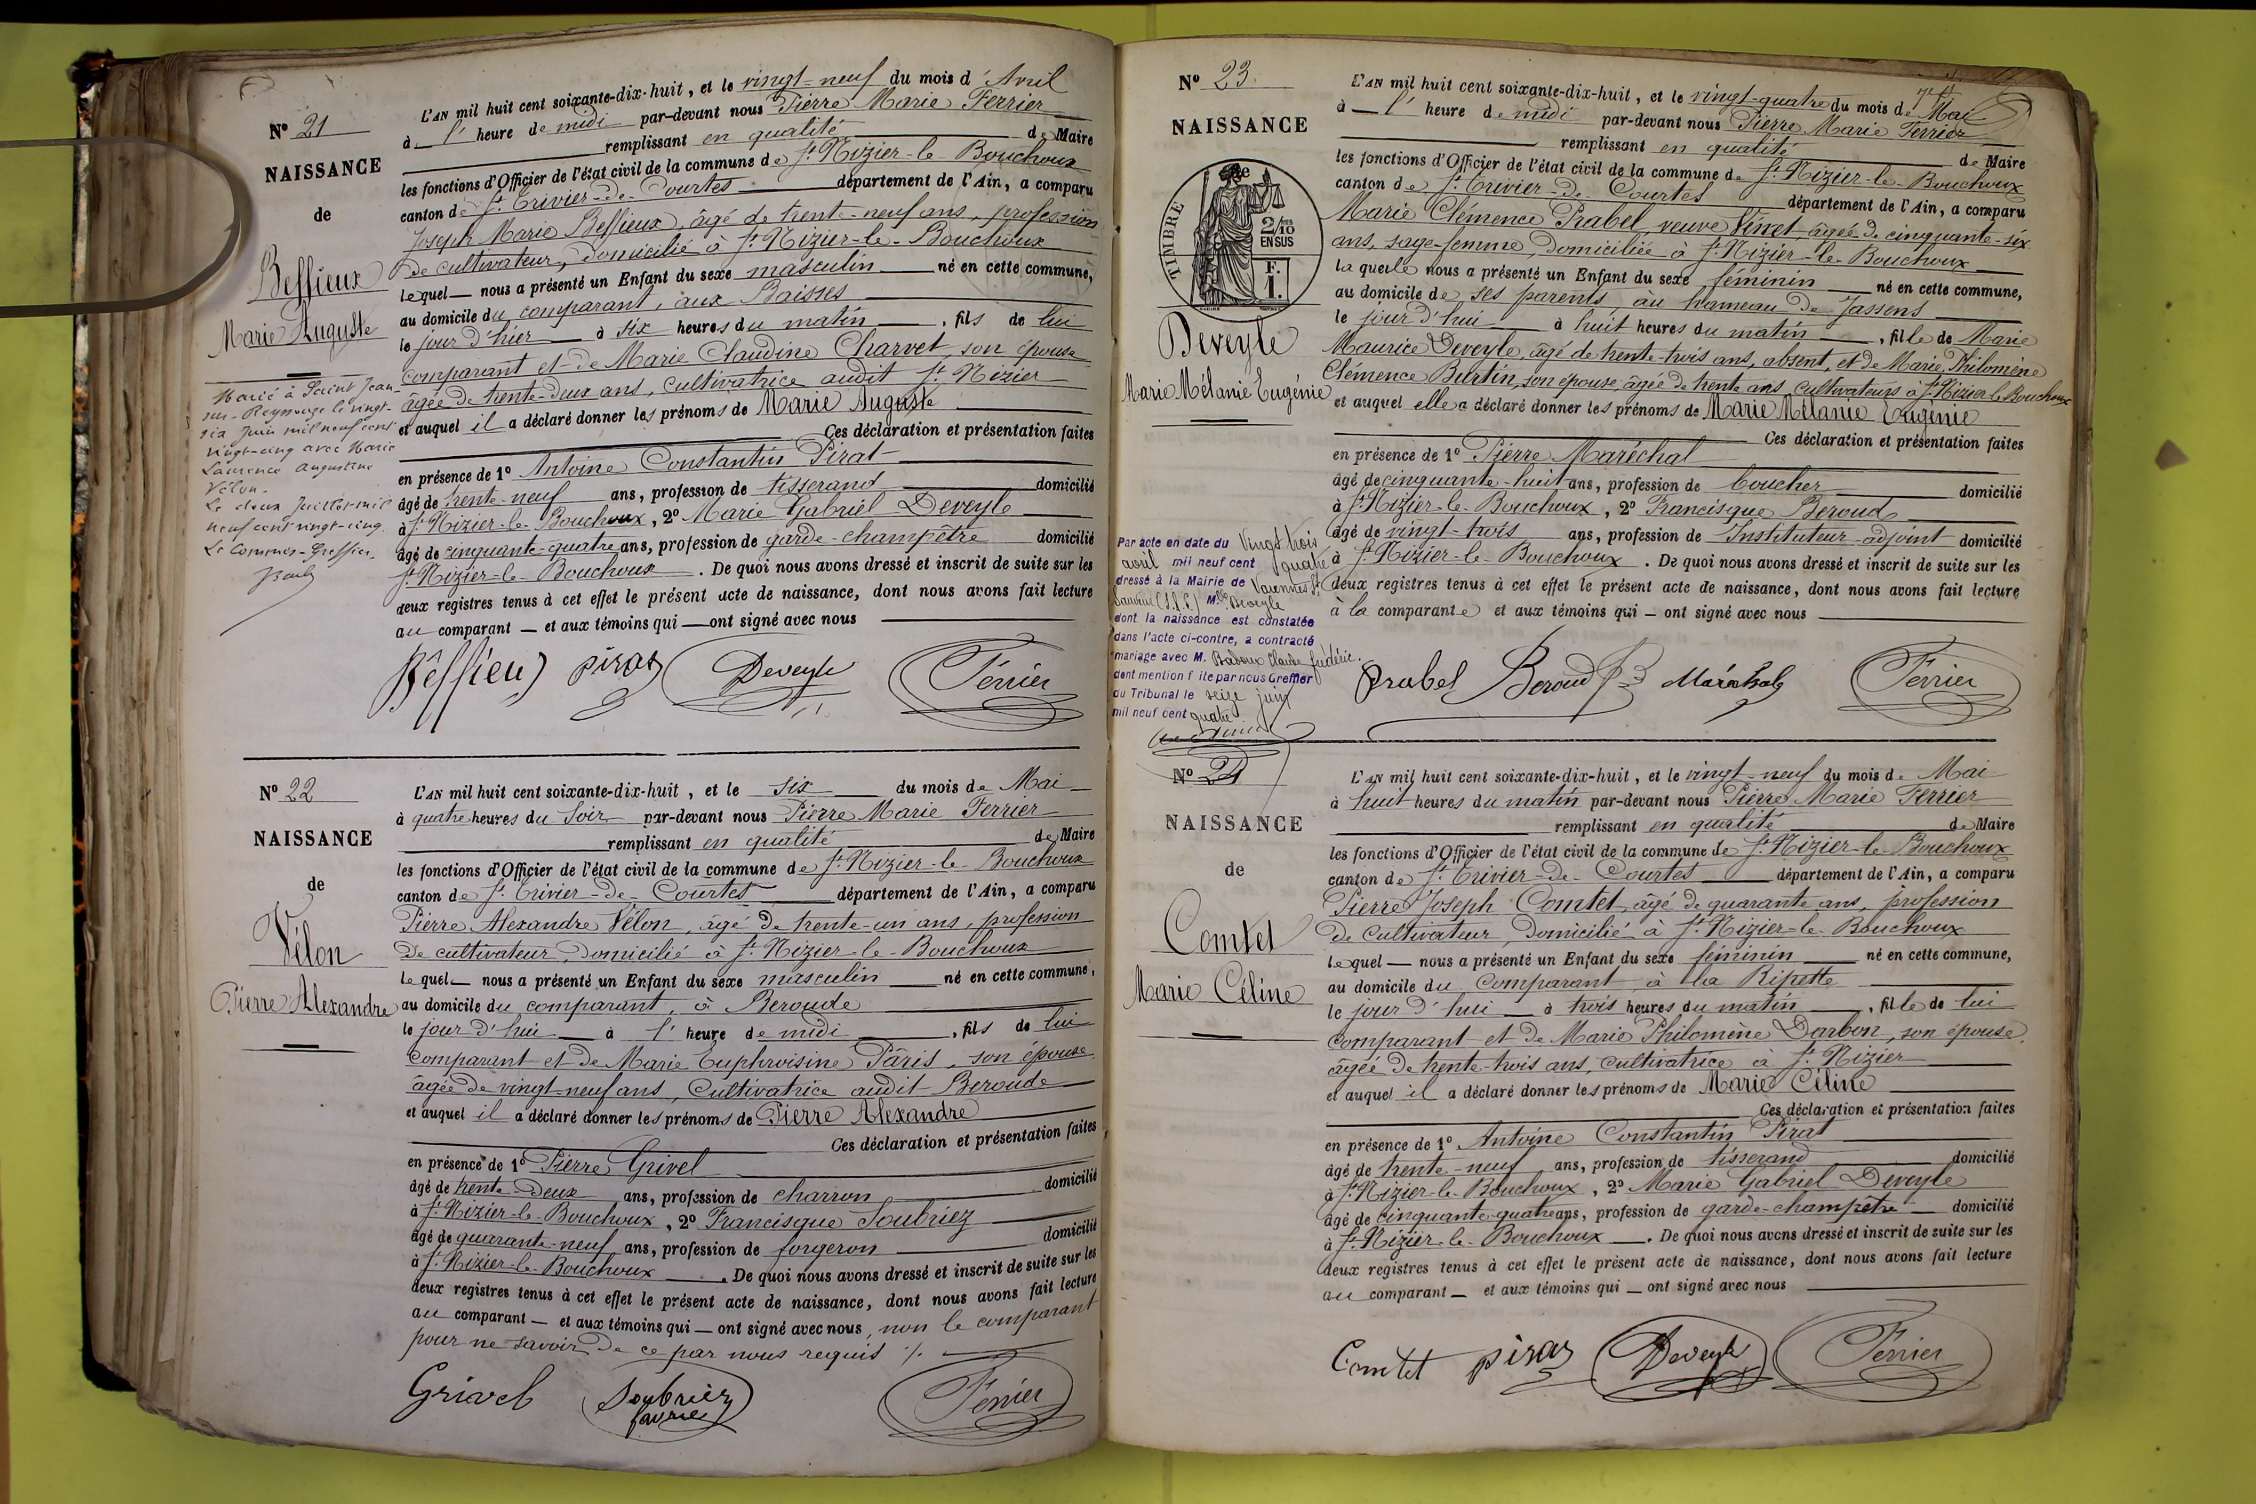 Nº 21
NAISSANCE
de
Beffieux
Marie Auguste
Marié à Saint Jean
sur-Reyssouze le vingt-
six juin mil neuf cent
vingt-cinq avec Marie
Laurence Augustine
Vélon.
Le deux juillet mil
neuf cent vingt-cinq.
Le Commis-Greffier
L'AN mil huit cent soixante-dix-huit, et le vingt-neuf du mois d'Avril
à l' heure de midi par-devant nous Pierre Marie Ferrier
remplissant en qualité de Maire
les fonctions d'Officier de l'état civil de la commune de St Nizier-le-Bouchoux
canton de St Trivier-de-Courtes département de l'Ain, a comparu
Joseph Marie Beffieux, âgé de trente-neuf ans, profession
de cultivateur, domicilié à St Nizier-le-Bouchoux
lequel nous a présenté un Enfant du sexe masculin né en cette commune,
au domicile du comparant, aux Baisses
le jour d'hier à six heures du matin, fils de lui
comparant et de Marie Claudine Charvet, son épouse
âgée de trente-deux ans, cultivatrice audit St Nizier
et auquel il a déclaré donner les prénoms de Marie Auguste
Ces déclaration et présentation faites
en présence de 1º Antoine Constantin Pirat
âgé de trente-neuf ans, profession de tisserand domicilié
à St Nizier-le-Bouchoux, 2º Marie Gabriel Deveyle
âgé de cinquante-quatre ans, profession de garde-champêtre domicilié
St Nizier-le-Bouchoux. De quoi nous avons dressé et inscrit de suite sur les
deux registres tenus à cet effet le présent acte de naissance, dont nous avons fait lecture
au comparant et aux témoins qui ont signé avec nous
Beffieux pirat Deveyle Ferrier
Nº 22
NAISSANCE
de
Vélon
Pierre Alexandre
L'AN mil huit cent soixante-dix-huit, et le six du mois de Mai
à quatre heures du soir par-devant nous Pierre Marie Ferrier
remplissant en qualité de Maire
les fonctions d'Officier de l'état civil de la commune de St Nizier-le-Bouchoux
canton de St Trivier-de-Courtes département de l'Ain, a comparu
Pierre Alexandre Vélon, âgé de trente-un ans, profession
de cultivateur, domicilié à St Nizier-le-Bouchoux
lequel nous a présenté un Enfant du sexe masculin né en cette commune,
au domicile du comparant, à Beroude
le jour d'hui à l' heure de midi, fils de lui
comparant et de Marie Euphroisine Pâris, son épouse
âgée de vingt-neuf ans, Cultivatrice audit Beroude
et auquel il a déclaré donner les prénoms de Pierre Alexandre
Ces déclaration et présentation faites
en présence de 1º Pierre Grivel
âgé de trente-deux ans, profession de charron domicilié
à St Nizier-le-Bouchoux, 2º Francisque Soubriez
âgé de quarante-neuf ans, profession de forgeron domicilié
à St Nizier-le-Bouchoux. De quoi nous avons dressé et inscrit de suite sur les
deux registres tenus à cet effet le présent acte de naissance, dont nous avons fait lecture
au comparant et aux témoins qui ont signé avec nous, non le comparant
pour ne savoir de ce par nous requis ./.
Grivel Soubriez Ferrier
Nº 23
NAISSANCE
de
TIMBRE
2/10
EN SUS
F.
1.
Deveyle
Marie Mélanie Eugénie
Par acte en date du vingt trois
avril mil neuf cent quatre
dressé à la Mairie de Varennes St
Sauveur (S.&L.) Mlle Deveyle
dont la naissance est constatée
dans l'acte ci-contre, a contracté
mariage avec M. Badoux Claude frédéric.
dont mention f ite par nous Greffier
du Tribunal le seize juin
mil neuf cent quatre
L'AN mil huit cent soixante-dix-huit, et le vingt-quatre du mois de Mai
à l' heure de midi par-devant nous Pierre Marie Ferrier
remplissant en qualité de Maire
les fonctions d'Officier de l'état civil de la commune de St Nizier-le-Bouchoux
canton de St Trivier-de-Courtes département de l'Ain, a comparu
Marie Clémence Prabel, veuve Vinet, âgée de cinquante-six
ans, sage-femme, domiciliée à St Nizier-le-Bouchoux
laquelle nous a présenté un Enfant du sexe féminin né en cette commune,
au domicile de ses parents, au hameau de Jassens
le jour d'hui à huit heures du matin, fille de Marie
Maurice Deveyle, âgé de trente-trois ans, absent, et de Marie Philomène
Clémence Burtin, son épouse âgée de trente ans cultivateurs à St Nizier-le-Bouchoux
et auquel elle a déclaré donner les prénoms de Marie Mélanie Eugénie
Ces déclaration et présentation faites
en présence de 1º Pierre Maréchal
âgé de cinquante-huit ans, profession de boucher domicilié
à St Nizier-le-Bouchoux, 2º Francisque Beroud
âgé de vingt-trois ans, profession de Instituteur-adjoint domicilié
à St Nizier-le-Bouchoux. De quoi nous avons dressé et inscrit de suite sur les
deux registres tenus à cet effet le présent acte de naissance, dont nous avons fait lecture
à la comparante et aux témoins qui ont signé avec nous
Prabel Beroud Maréchal Ferrier
Nº 24
NAISSANCE
de
Comtet
Marie Céline
L'AN mil huit cent soixante-dix-huit, et le vingt-neuf du mois de Mai
à huit heures du matin par-devant nous Pierre Marie Ferrier
remplissant en qualité de Maire
les fonctions d'Officier de l'état civil de la commune de St Nizier-le-Bouchoux
canton de St Trivier-de-Courtes département de l'Ain, a comparu
Pierre Joseph Comtet, âgé de quarante ans, profession
de cultivateur, domicilié à St Nizier-le-Bouchoux
lequel nous a présenté un Enfant du sexe féminin né en cette commune,
au domicile du comparant, à la Ripette
le jour d'hui à trois heures du matin, fille de lui
comparant et de Marie Philomène Darbon, son épouse,
âgée de trente-trois ans, cultivatrice à St Nizier
et auquel il a déclaré donner les prénoms de Marie Céline
Ces déclaration et présentation faites
en présence de 1º Antoine Constantin Pirat
âgé de trente-neuf ans, profession de tisserand domicilié
à St Nizier-le-Bouchoux, 2º Marie Gabriel Deveyle
âgé de cinquante-quatre ans, profession de garde-champêtre domicilié
à St Nizier-le-Bouchoux. De quoi nous avons dressé et inscrit de suite sur les
deux registres tenus à cet effet le présent acte de naissance, dont nous avons fait lecture
au comparant et aux témoins qui ont signé avec nous
Comtet pirat Deveyle Ferrier